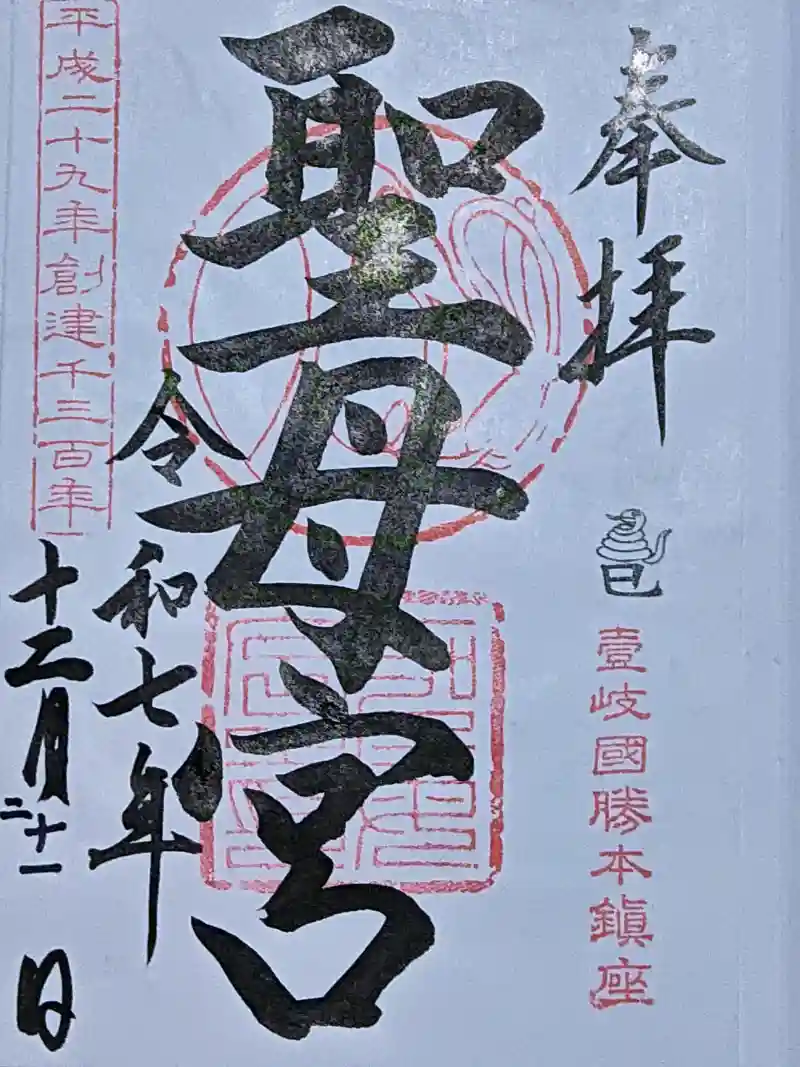 奉拝
巳
壹岐國勝本鎮座
聖母宮
令和七年
十二月二十一日
平成二十九年創建千三百年